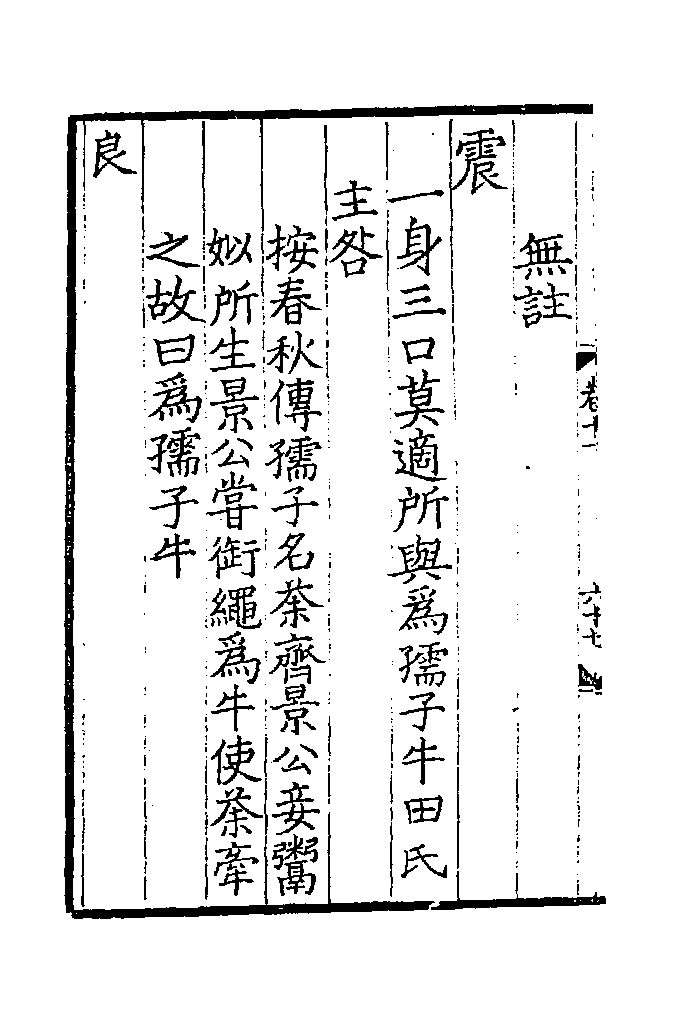 卷十一
六十七
無註
震
一身三口莫適所與為孺子牛田氏
主咎
按春秋傳孺子名荼齊景公妾鬻
姒所生景公嘗銜繩為牛使荼牽
之故曰為孺子牛
艮